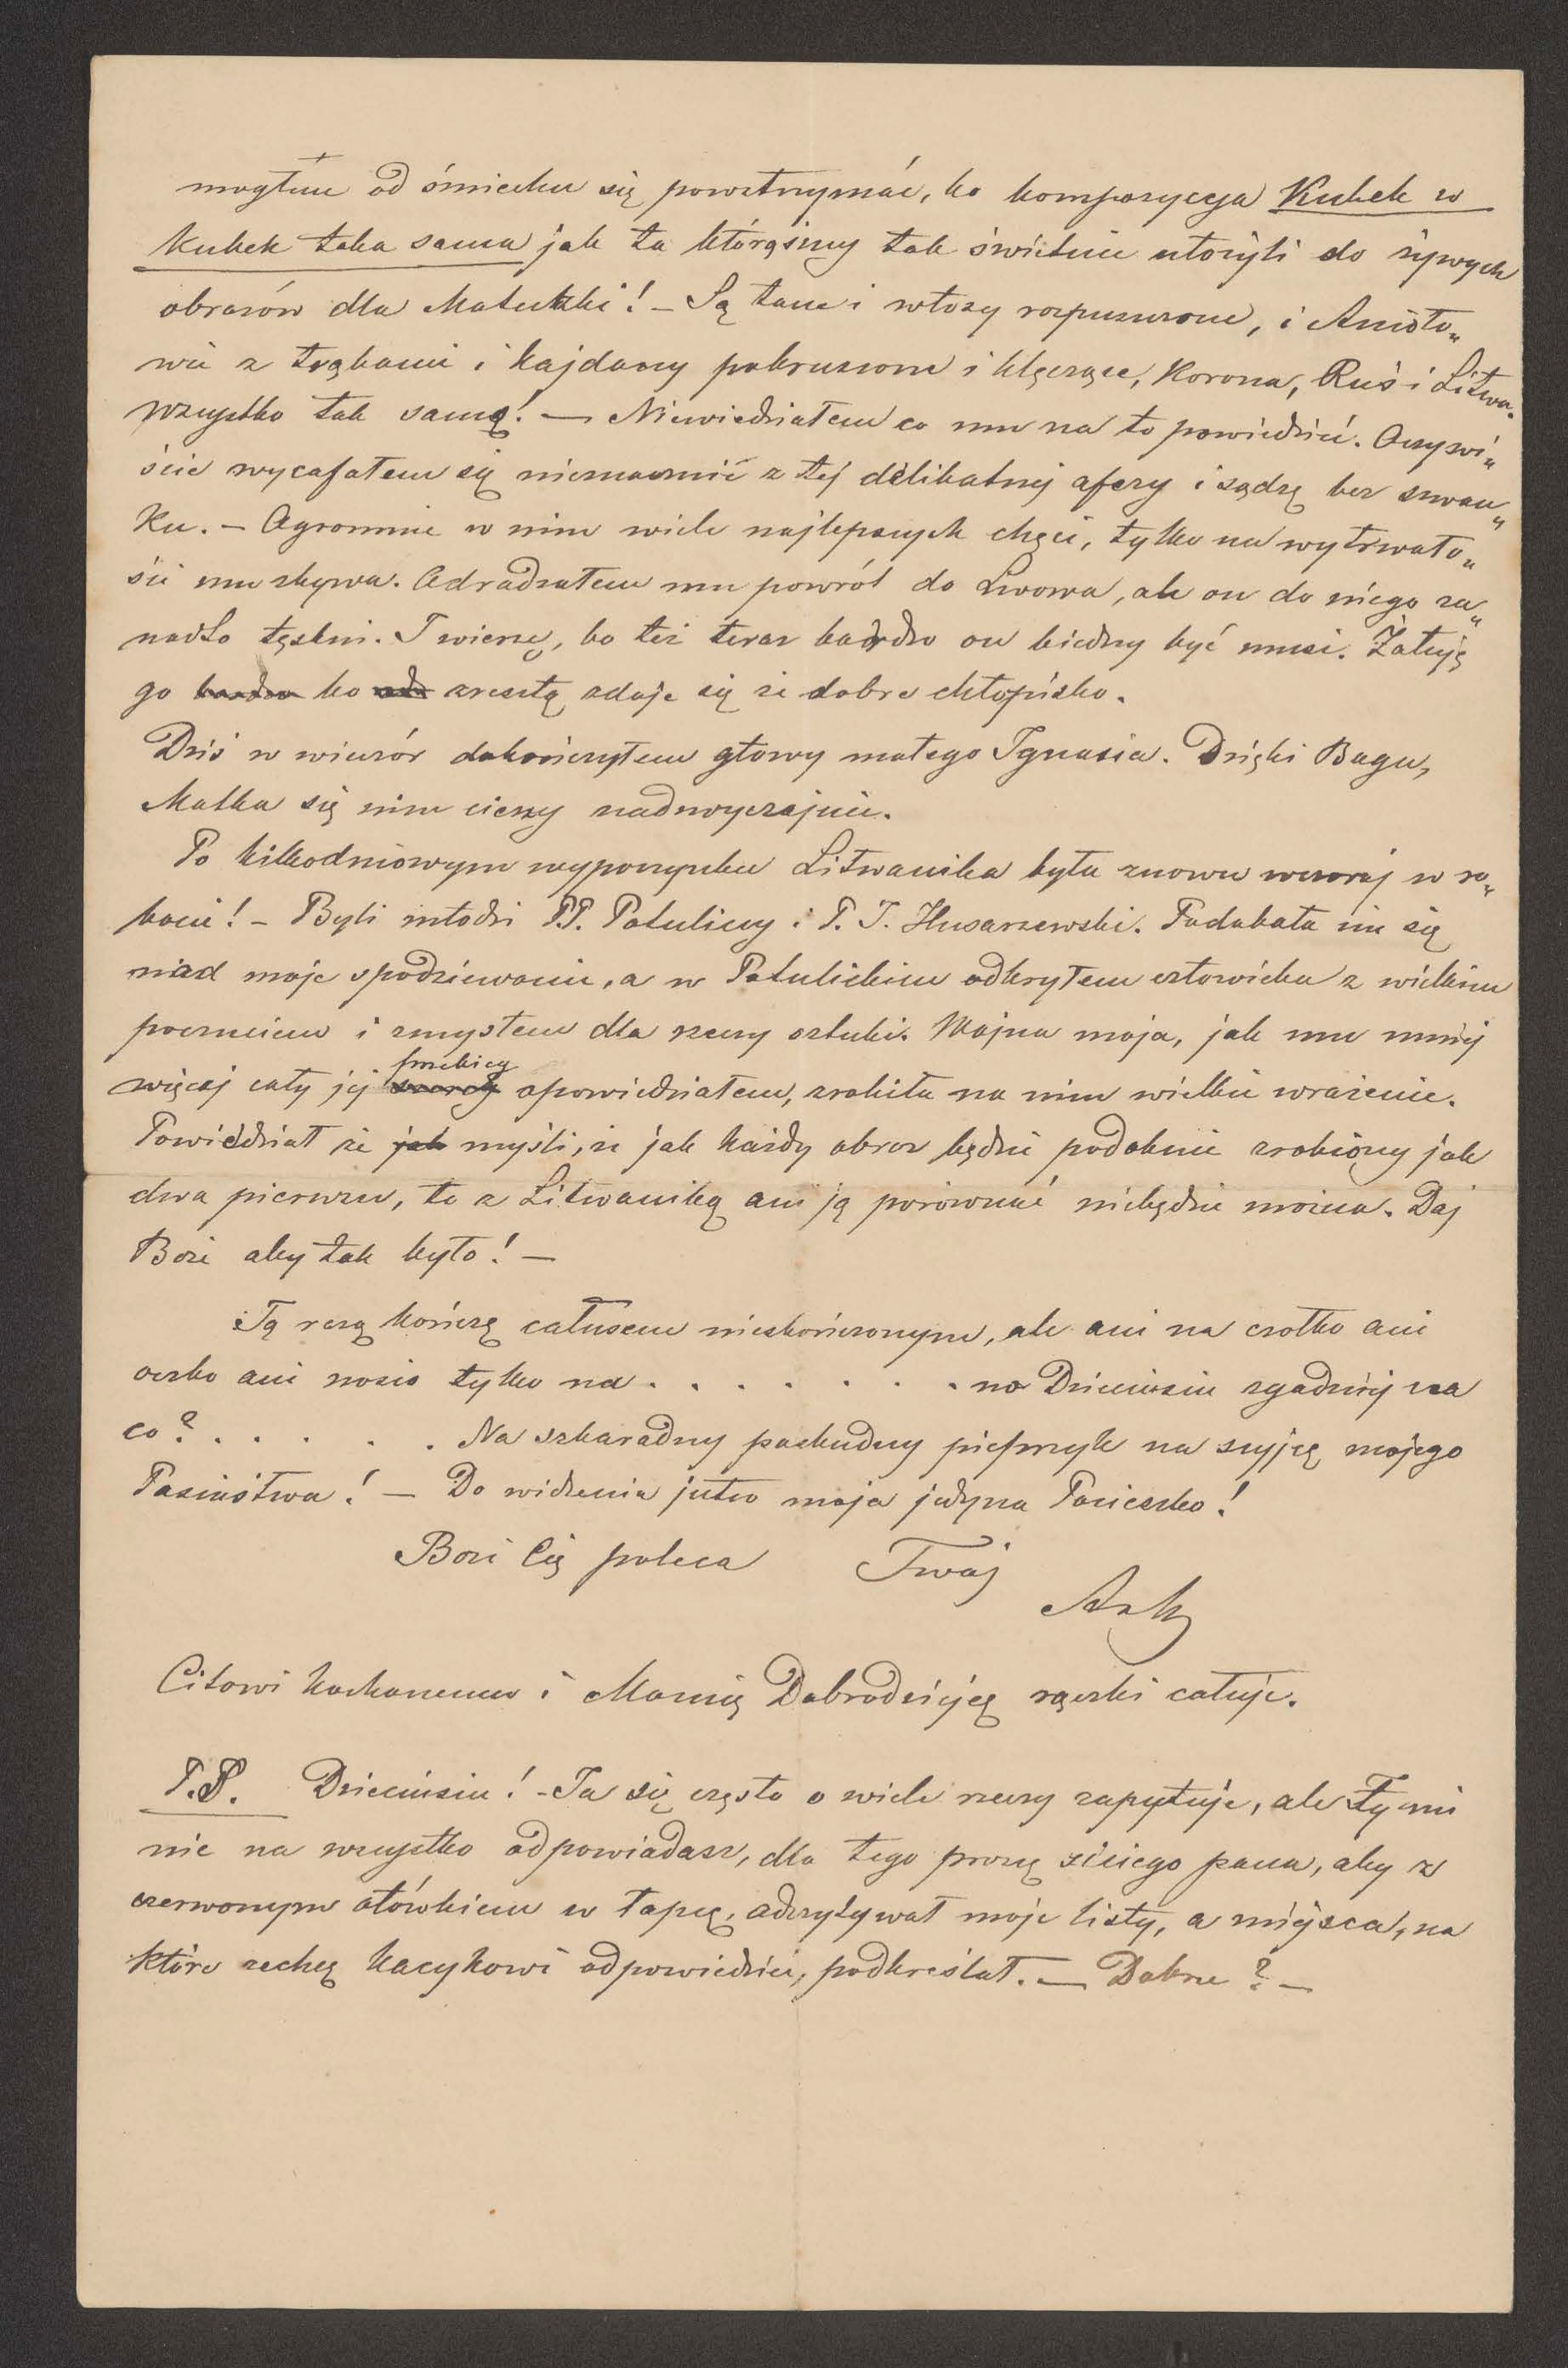 mogłem od śmiechu się powstrzymać, bo kompozycya Kubek w
Kubek taka sama jak ta którąśmy tak świetnie ułożyli do żywych
obrazów dla Matuszki! – Są tam i włosy rozpuszczone, i Anioło„
wie z trąbami i kajdany pokruszone i klęczące, Korona, Ruś i Litwa.
Wszystko tak samo! — Niewiedziałem co mu na to powiedzieć. Oczywi„
ście wycafałem się nieznacznie z tej delikatnej afery i sądzę bez szwan„
ku. – Ogromnie w nim wiele najlepszych chęci, tylko na wytrwało„
ści mu zbywa. Odradzałem mu powrót do Lwowa, ale on do niego za„
nadto tęskni. I wierzę, bo też teraz bardzo on biedny być musi. Żałuję
go bardzo bo zresztą zdaje się że dobre chłopisko.
Dziś w wieczór dokończyłem głowy małego Ignasia. Dzięki Bogu,
Matka się nim cieszy nadzwyczajnie.
Po kilkodniowym wypoczynku Litwanika była znowu wczoraj w ro„
bocie! – Byli młodzi P.P. Potuliccy i P. J. Husarzewski. Podobała im się
nad moje spodziewanie, a w Potulickim odkryłem człowieka z wielkim
poczuciem i zmysłem dla rzeczy sztuki. Wojna moja, jak mu mniej
więcej cały jej przebieg opowiedziałem, zrobiła na nim wielkie wrażenie.
Powiedział że jak myśli, że jak każdy obraz będzie podobnie zrobiony jak
dwa pierwsze, to z Litwaniką ani ją porównać niebędzie można. Daj
Boże aby tak było! —
Tą razą kończę całusem nieskończonym, ale ani na czołko ani
oczko ani nosio tylko na . . . . . . . . no Dzieciusiu zgadnij na
co? . . . . . . Na szkaradny paskudny pieprzyk na szyję mojego
Pasiństwa! — Do widzenia jutro moja jedyna Panieczko!
Bozi Cię poleca Twój
Artz
Citowi kochanemu i Mamię Dobrodziejce rączki całuje.
P.S. Dzieciusiu! - Ja się często o wiele rzeczy zapytuje, ale Ty mi
nie na wszystko odpowiadasz, dla tego proszę siciego pana, aby z
czerwonym ołówkiem w łapce, odczytywał moje listy, a miejsca, na
które zechcę Kacykowi odpowiedzieć, podkreślał. — Dobrze? —